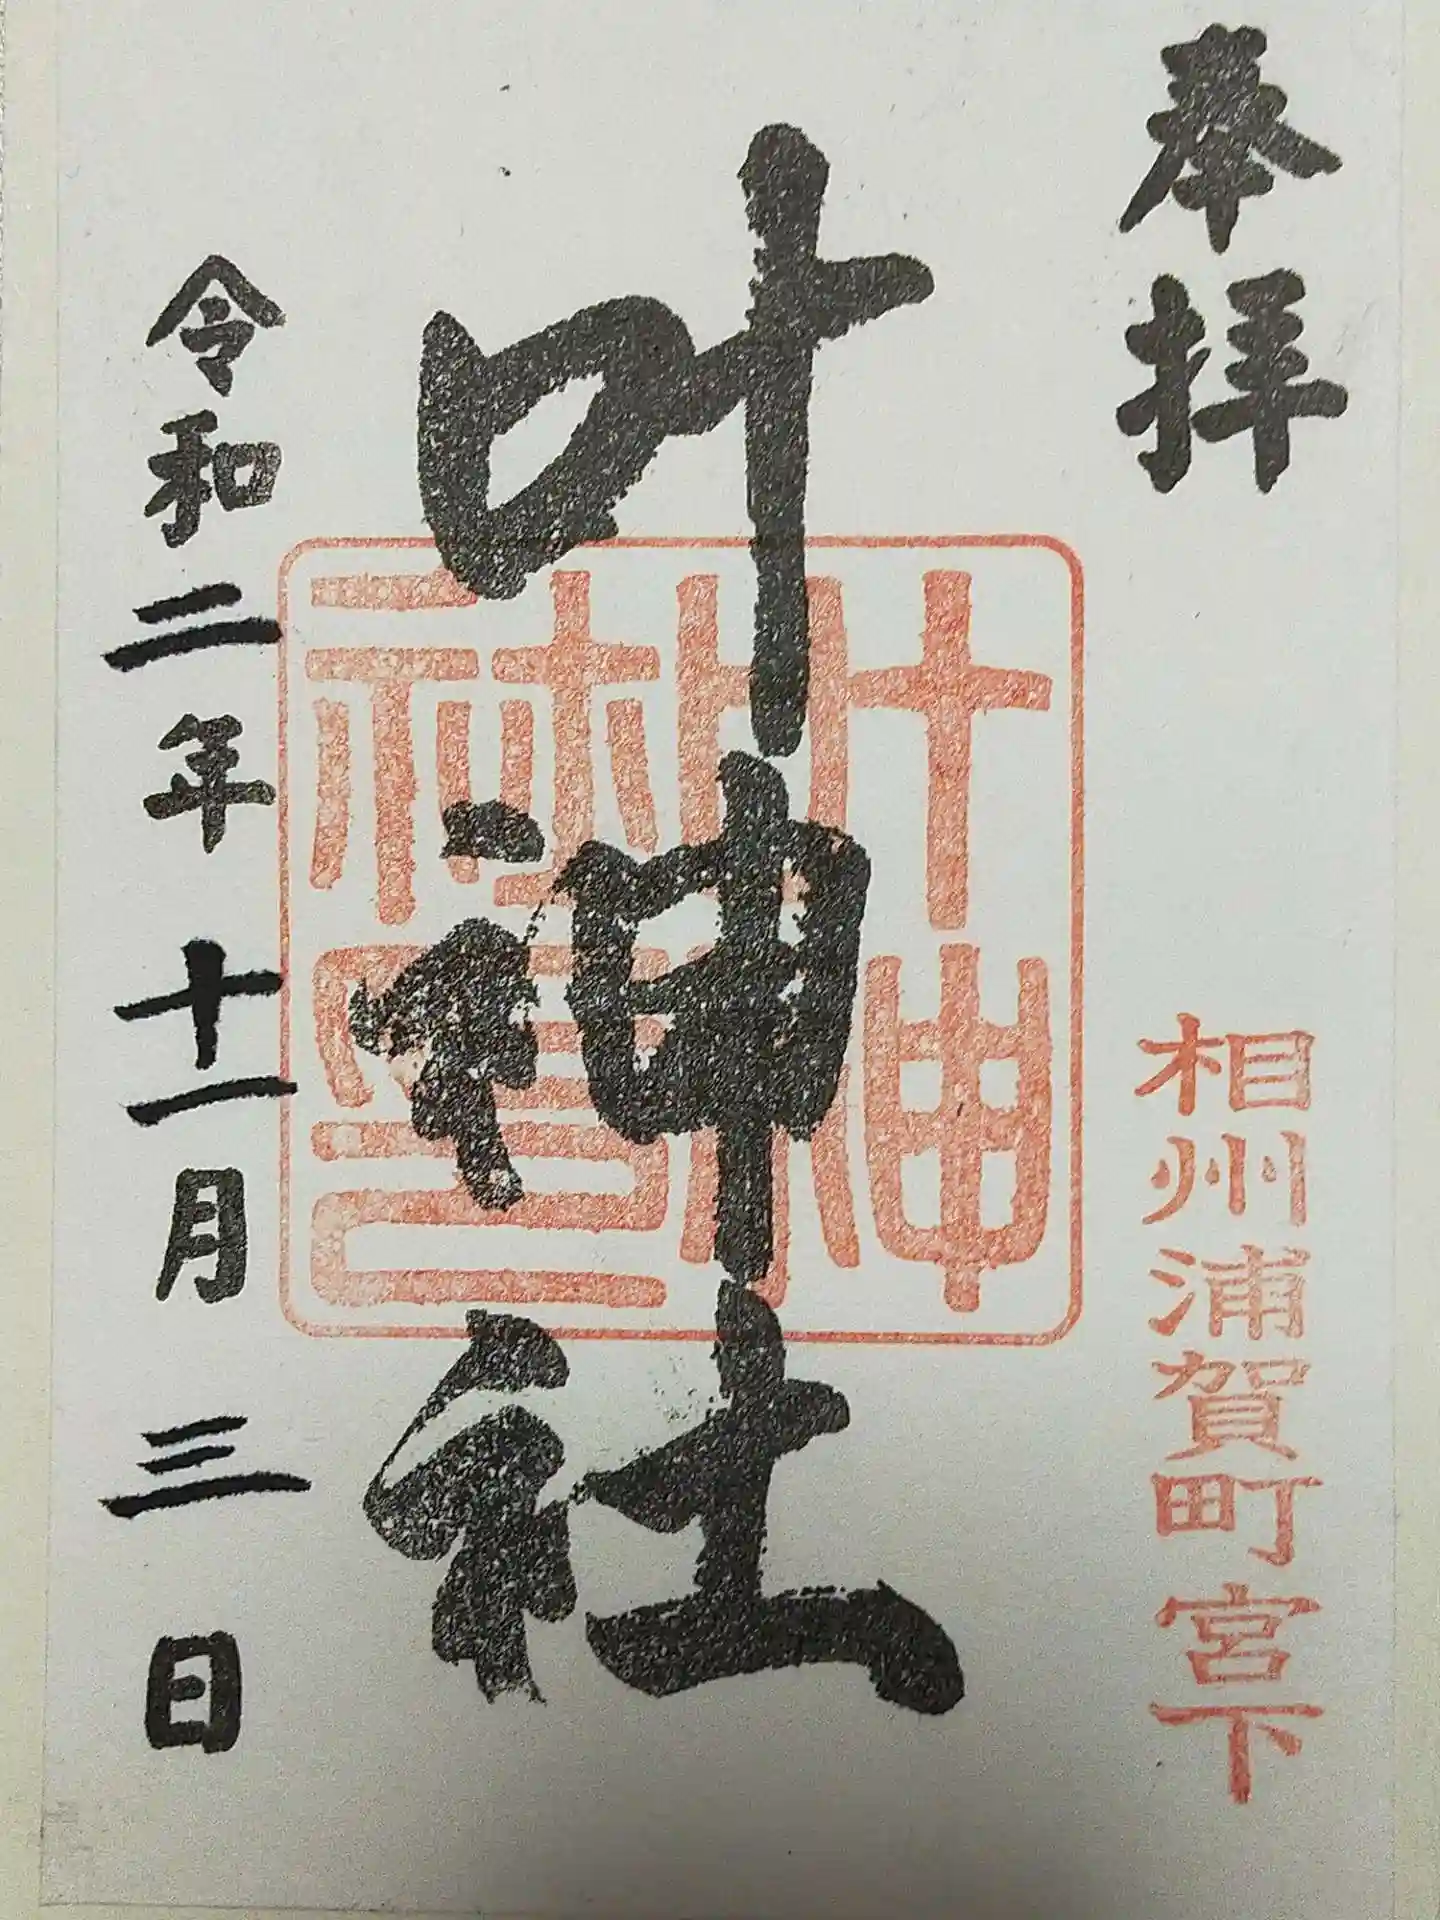 奉拝
相州浦賀町宮下
叶神社
叶神社之印
令和二年十一月三日